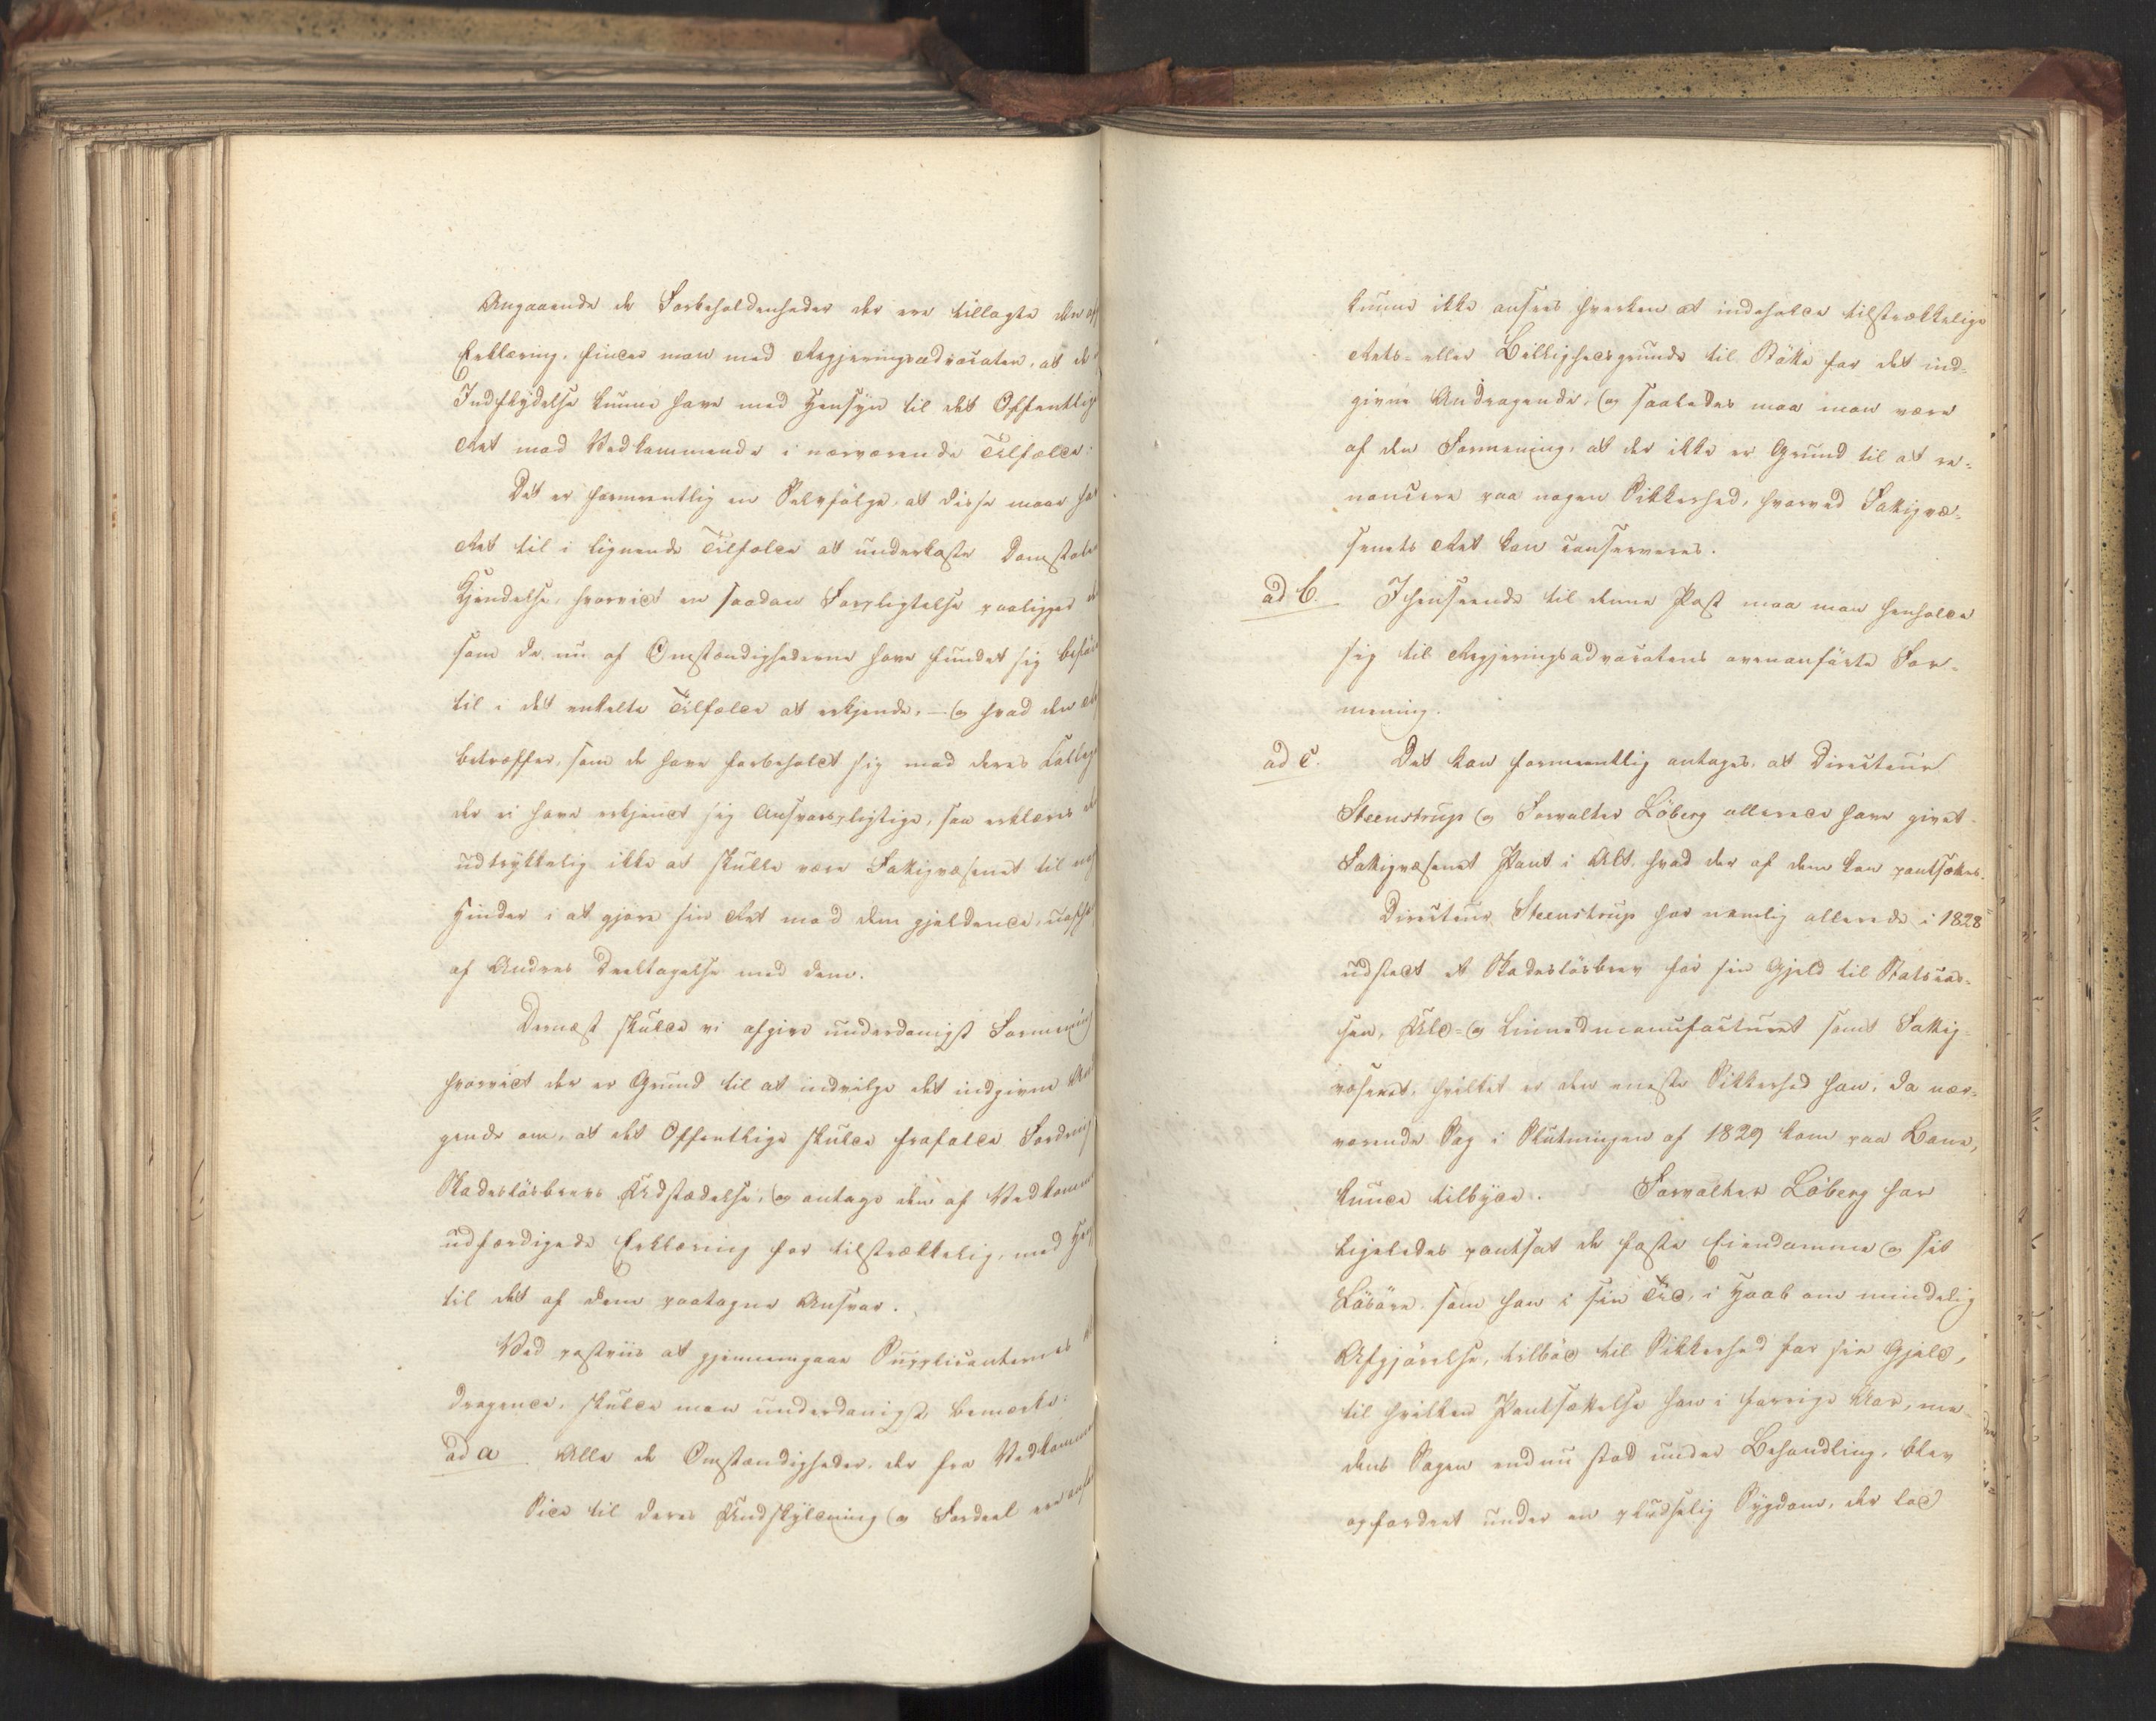 Angaaende de Forbeholdenheder der ere tillagte den
Erklæring, finder man med Regjeringsadvocaten, at de
Indflydelse kunne have med Hensyn til det Offentlig
Ret mod Vedkommende i nærværende Tilfælde:
Det er formeentlig en Selvfølge, at disse maae ha
Ret til i lignende Tilfælde at underkaste Domstole
Kjendelse, hvorvidt en saadan Forpligtelse paaligger
som de nu af Omstændighederne have fundet sig beföi
til i det enkelte Tilfælde at erkjende, – og hvad den
betræffer, som de have forbeholdt sig mod deres Colleg
der ei have erkjendt sig Ansvarspligtige, saa erklæres
udtrykkelig ikke at skulle være Fattigvæsenet til
Hinder i at gjøre sin Ret mod dem gjeldende, uafh
af Andres Deeltagelse med dem.
Dernæst skulde vi afgive underdanigst Formening
hvorvidt der er Grund til at indvilge det indgivne And
gende om, at det Offentlige skulde frafalde Fordring
Skadesløsbrevs Udstædelse, og antage den af Vedkomme
udfærdigede Erklæring for tilstrækkelig, med Hen
til det af dem paatagne Ansvar.
Ved postviis at gjennemgaae Supplicanternes
dragende, skulde man underdanigst bemærke:
ad a Alle de Omstændigheder, der fra Vedkomme
Side til deres Undskyldning og Fordeel ere anfø
kunne ikke ansees hverken at indeholde tilstrækkelige
Rets- eller Billighedsgrunde til Støtte for det ind-
givne Andragende, og saaledes maa man være
af den Formening, at der ikke er Grund til at re-
noncere paa nogen Sikkerhed, hvorved Fattigvæ-
senets Ret kan conserveres.
ad b. Ihenseende til denne Post maa man henholde
sig til Regjeringsadvocatens ovenanførte For-
mening.
ad c. Det kan formeentlig antages, at Directeur
Steenstrup og Forvalter Løberg allerede have givet
Fattigvæsenet Pant i Alt, hvad der af dem kan pantsættes.
Directeur Steenstrup har nemlig allerede i 1828
udstædt et Skadesløsbrev for sin Gjeld til Statscas-
sen, Uld- og Linnedmanufacturet samt Fattig-
væsenet, hvilket er den eneste Sikkerhed han, da nær-
værende Sag i Slutningen af 1829 kom paa Bane,
kunde tilbyde. Forvalter Løberg har
ligeledes pantsat de faste Eiendomme og sit
Løsøre, som han i sin Tid, i Haab om mindelig
Afgjørelse, tilbød til Sikkerhed for sin Gjeld,
til hvilken Pantsættelse han i forrige Aar, me-
dens Sagen endnu stod under Behandling, blev
opfordret under en pludselig Sygdom, der lod